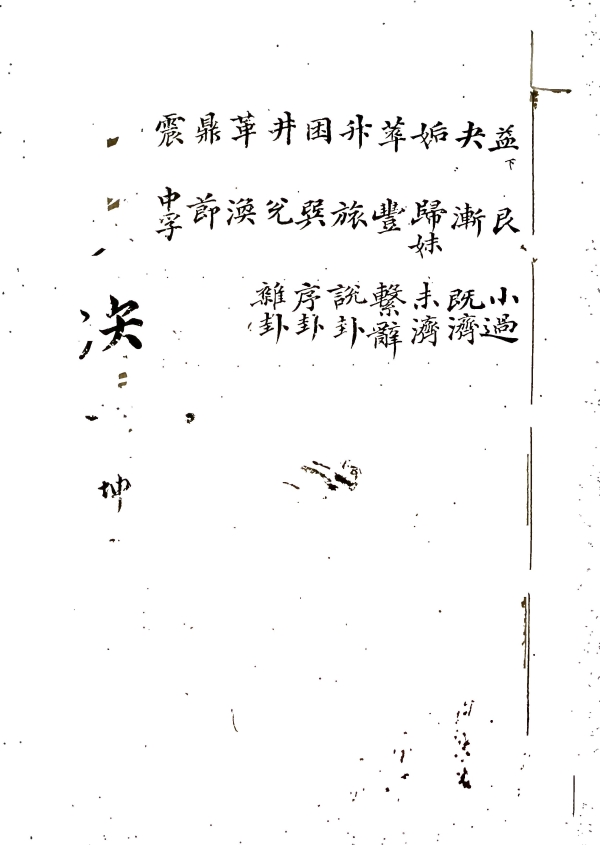 益下 夬 姤 萃 升 困 井 革 鼎 震
艮 漸 歸妹 豐 旅 巽 兌 渙 節 中孚
小過 既濟 未濟 繫辭 說卦 序卦 雜卦
決
坤